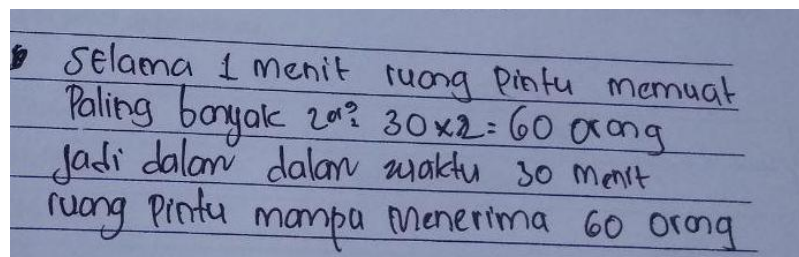 Selama 1 menit ruang pintu memuat
Paling banyak 2 30x2=60 orang
Jadi dalam dalam waktu 30 menit
ruang pintu mampu menerima 60 orang